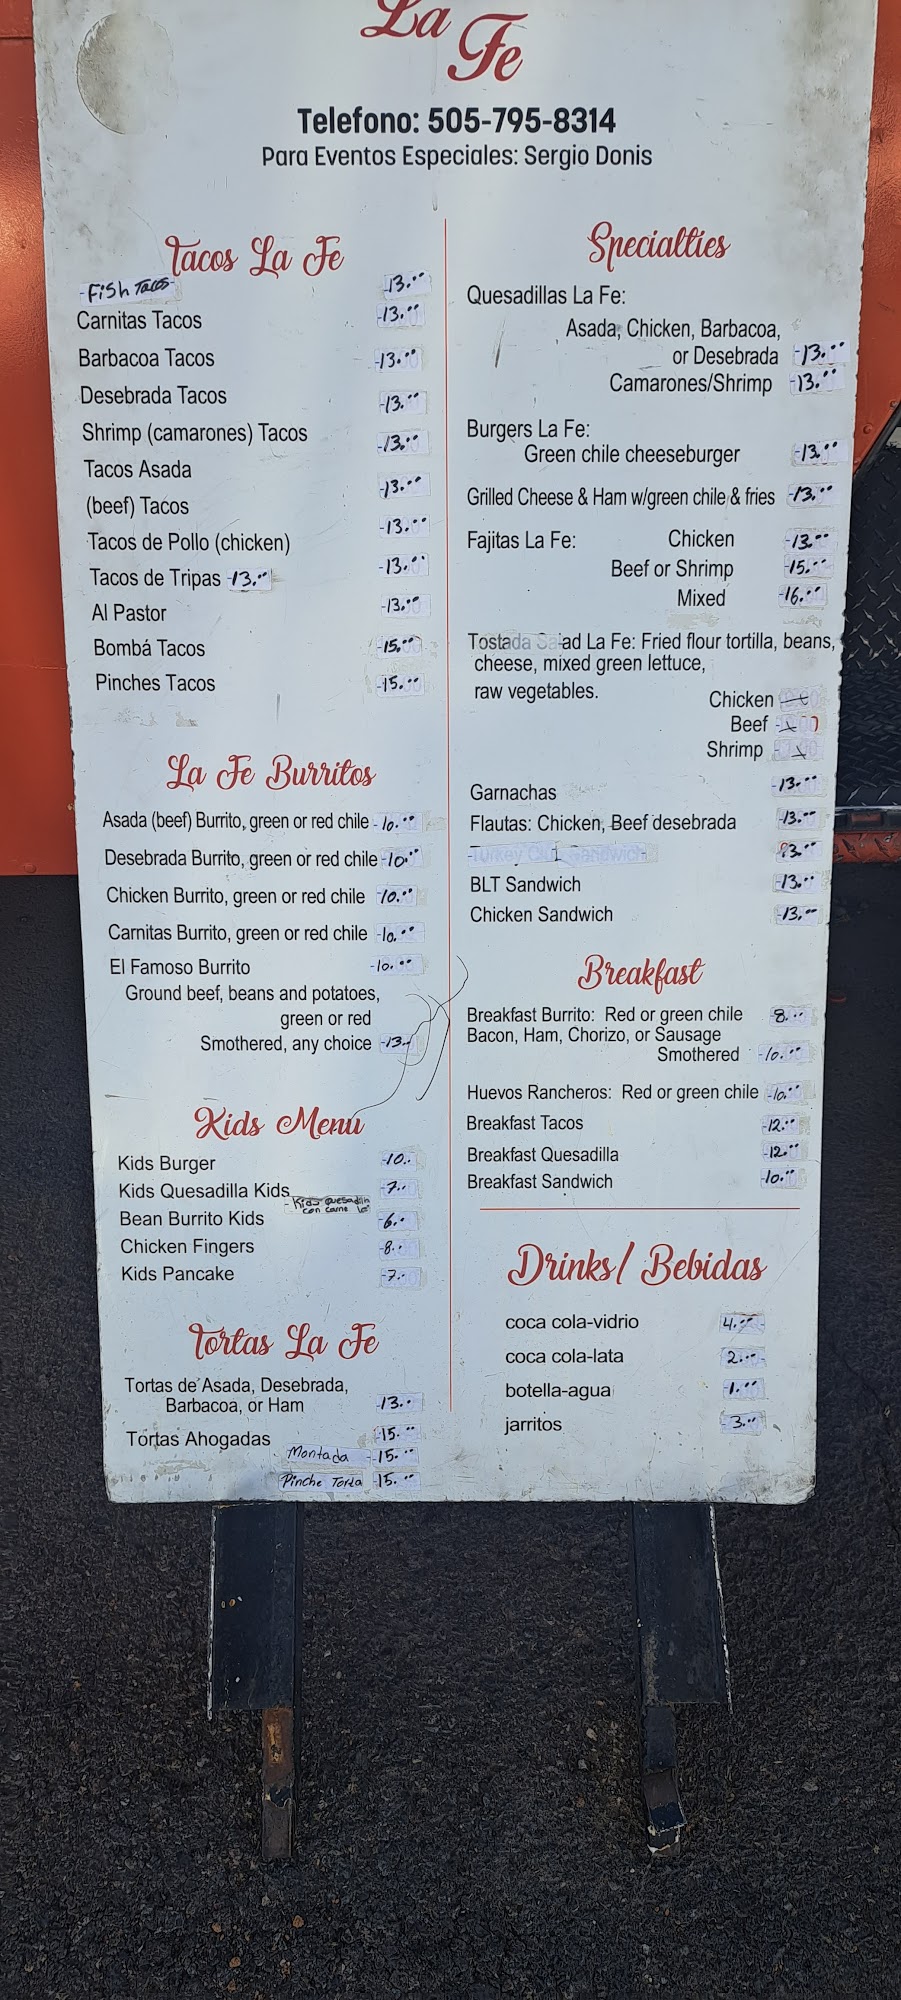 La
Fe
Telefono: 505-795-8314
Para Eventos Especiales: Sergio Donis
Tacos La Fe
-Fish Tacos- -13.00
Carnitas Tacos -13.00
Barbacoa Tacos -13.00
Desebrada Tacos -13.00
Shrimp (camarones) Tacos -13.00
Tacos Asada -13.00
(beef) Tacos -13.00
Tacos de Pollo (chicken) -13.00
Tacos de Tripas -13.00
Al Pastor -13.00
Bombá Tacos -15.00
Pinches Tacos -15.00
La Fe Burritos
Asada (beef) Burrito, green or red chile -10.00
Desebrada Burrito, green or red chile -10.00
Chicken Burrito, green or red chile -10.00
Carnitas Burrito, green or red chile -10.00
El Famoso Burrito -10.00
Ground beef, beans and potatoes,
green or red
Smothered, any choice -13-
Kids Menu
Kids Burger -10..
Kids Quesadilla Kids -7..
-Kids Quesadilla
con carne
Bean Burrito Kids -6..
Chicken Fingers -8..
Kids Pancake -7..
Tortas La Fe
Tortas de Asada, Desebrada,
Barbacoa, or Ham -13..
Tortas Ahogadas -15.00
Montada -15.00
Pinche Torta -15.00
Specialties
Quesadillas La Fe:
Asada, Chicken, Barbacoa,
or Desebrada -13.00
Camarones/Shrimp -13.00
Burgers La Fe:
Green chile cheeseburger -13.00
Grilled Cheese & Ham w/green chile & fries -13.00
Fajitas La Fe: Chicken -13.00
Beef or Shrimp -15.00
Mixed -16.00
Tostada Salad La Fe: Fried flour tortilla, beans,
cheese, mixed green lettuce,
raw vegetables.
Chicken
Beef
Shrimp
Garnachas -13.00
Flautas: Chicken, Beef desebrada -13.00
Turkey Club Sandwich 13.00
BLT Sandwich -13.00
Chicken Sandwich -13.00
Breakfast
Breakfast Burrito: Red or green chile 8.00
Bacon, Ham, Chorizo, or Sausage
Smothered -10.00
Huevos Rancheros: Red or green chile -10.00
Breakfast Tacos -12.00
Breakfast Quesadilla -12.00
Breakfast Sandwich 10.00
Drinks/ Bebidas
coca cola-vidrio 4.00
coca cola-lata 2.00
botella-agua -1.00
jarritos -3.00